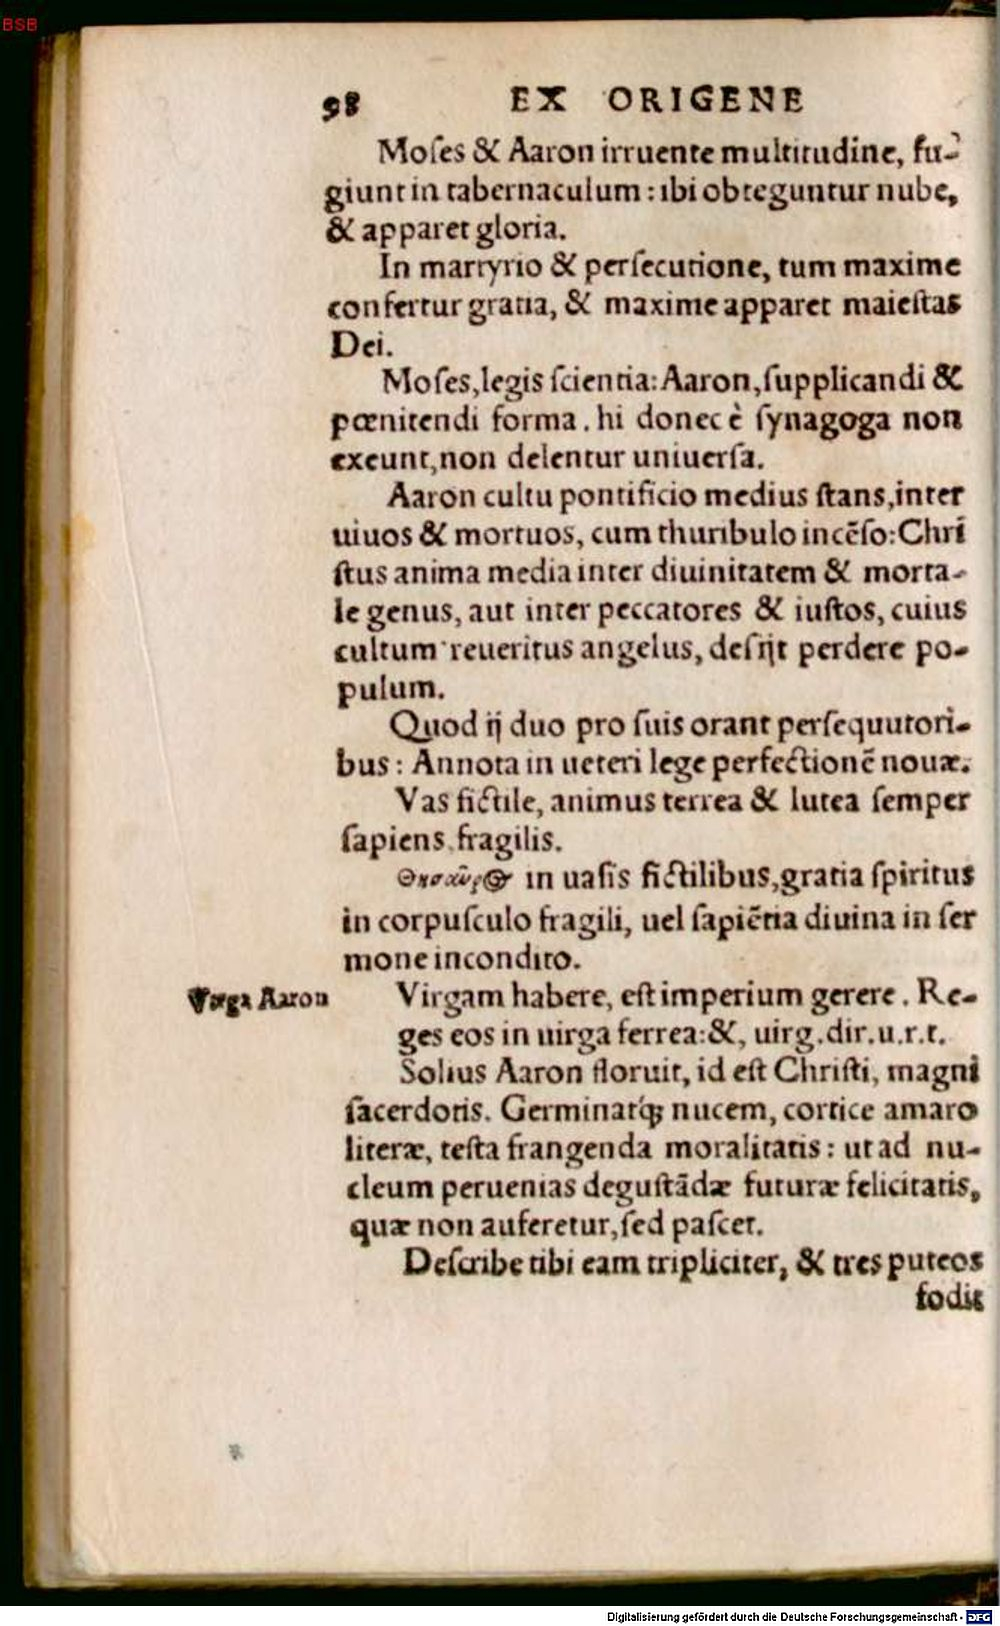 BSB
98 EX ORIGENE
Moſes & Aaron irruente multitudine, fu-
giunt in tabernaculum: ibi obteguntur nube,
& apparet gloria.
In martyrio & perſecutione, tum maxime
confertur gratia, & maxime apparet maieſtas
Dei.
Moſes, legis ſcientia: Aaron, ſupplicandi &
pœnitendi forma. hi donec è ſynagoga non
exeunt, non delentur uniuerſa.
Aaron cultu pontificio medius ſtans, inter
uiuos & mortuos, cum thuribulo incẽſo: Chri
ſtus anima media inter diuinitatem & morta-
le genus, aut inter peccatores & iuſtos, cuius
cultum reueritus angelus, deſijt perdere po-
pulum.
Quod ij duo pro ſuis orant perſequutori-
bus: Annota in ueteri lege perfectionẽ nouæ.
Vas fictile, animus terrea & lutea ſemper
ſapiens fragilis.
Θησαῦρος in uaſis fictilibus, gratia ſpiritus
in corpuſculo fragili, uel ſapiẽtia diuina in ſer
mone incondito.
Virga Aaron
Virgam habere, eſt imperium gerere. Re-
ges eos in uirga ferrea: &, uirg. dir. u. r. t.
Solius Aaron floruit, id eſt Chriſti, magni
ſacerdotis. Germinatq́ꝫ nucem, cortice amaro
literæ, teſta frangenda moralitatis: ut ad nu-
cleum peruenias deguſtãdæ futuræ felicitatis,
quæ non auferetur, ſed paſcet.
Deſcribe tibi eam tripliciter, & tres puteos
fodit
Digitalisierung gefördert durch die Deutsche Forschungsgemeinschaft - DFG